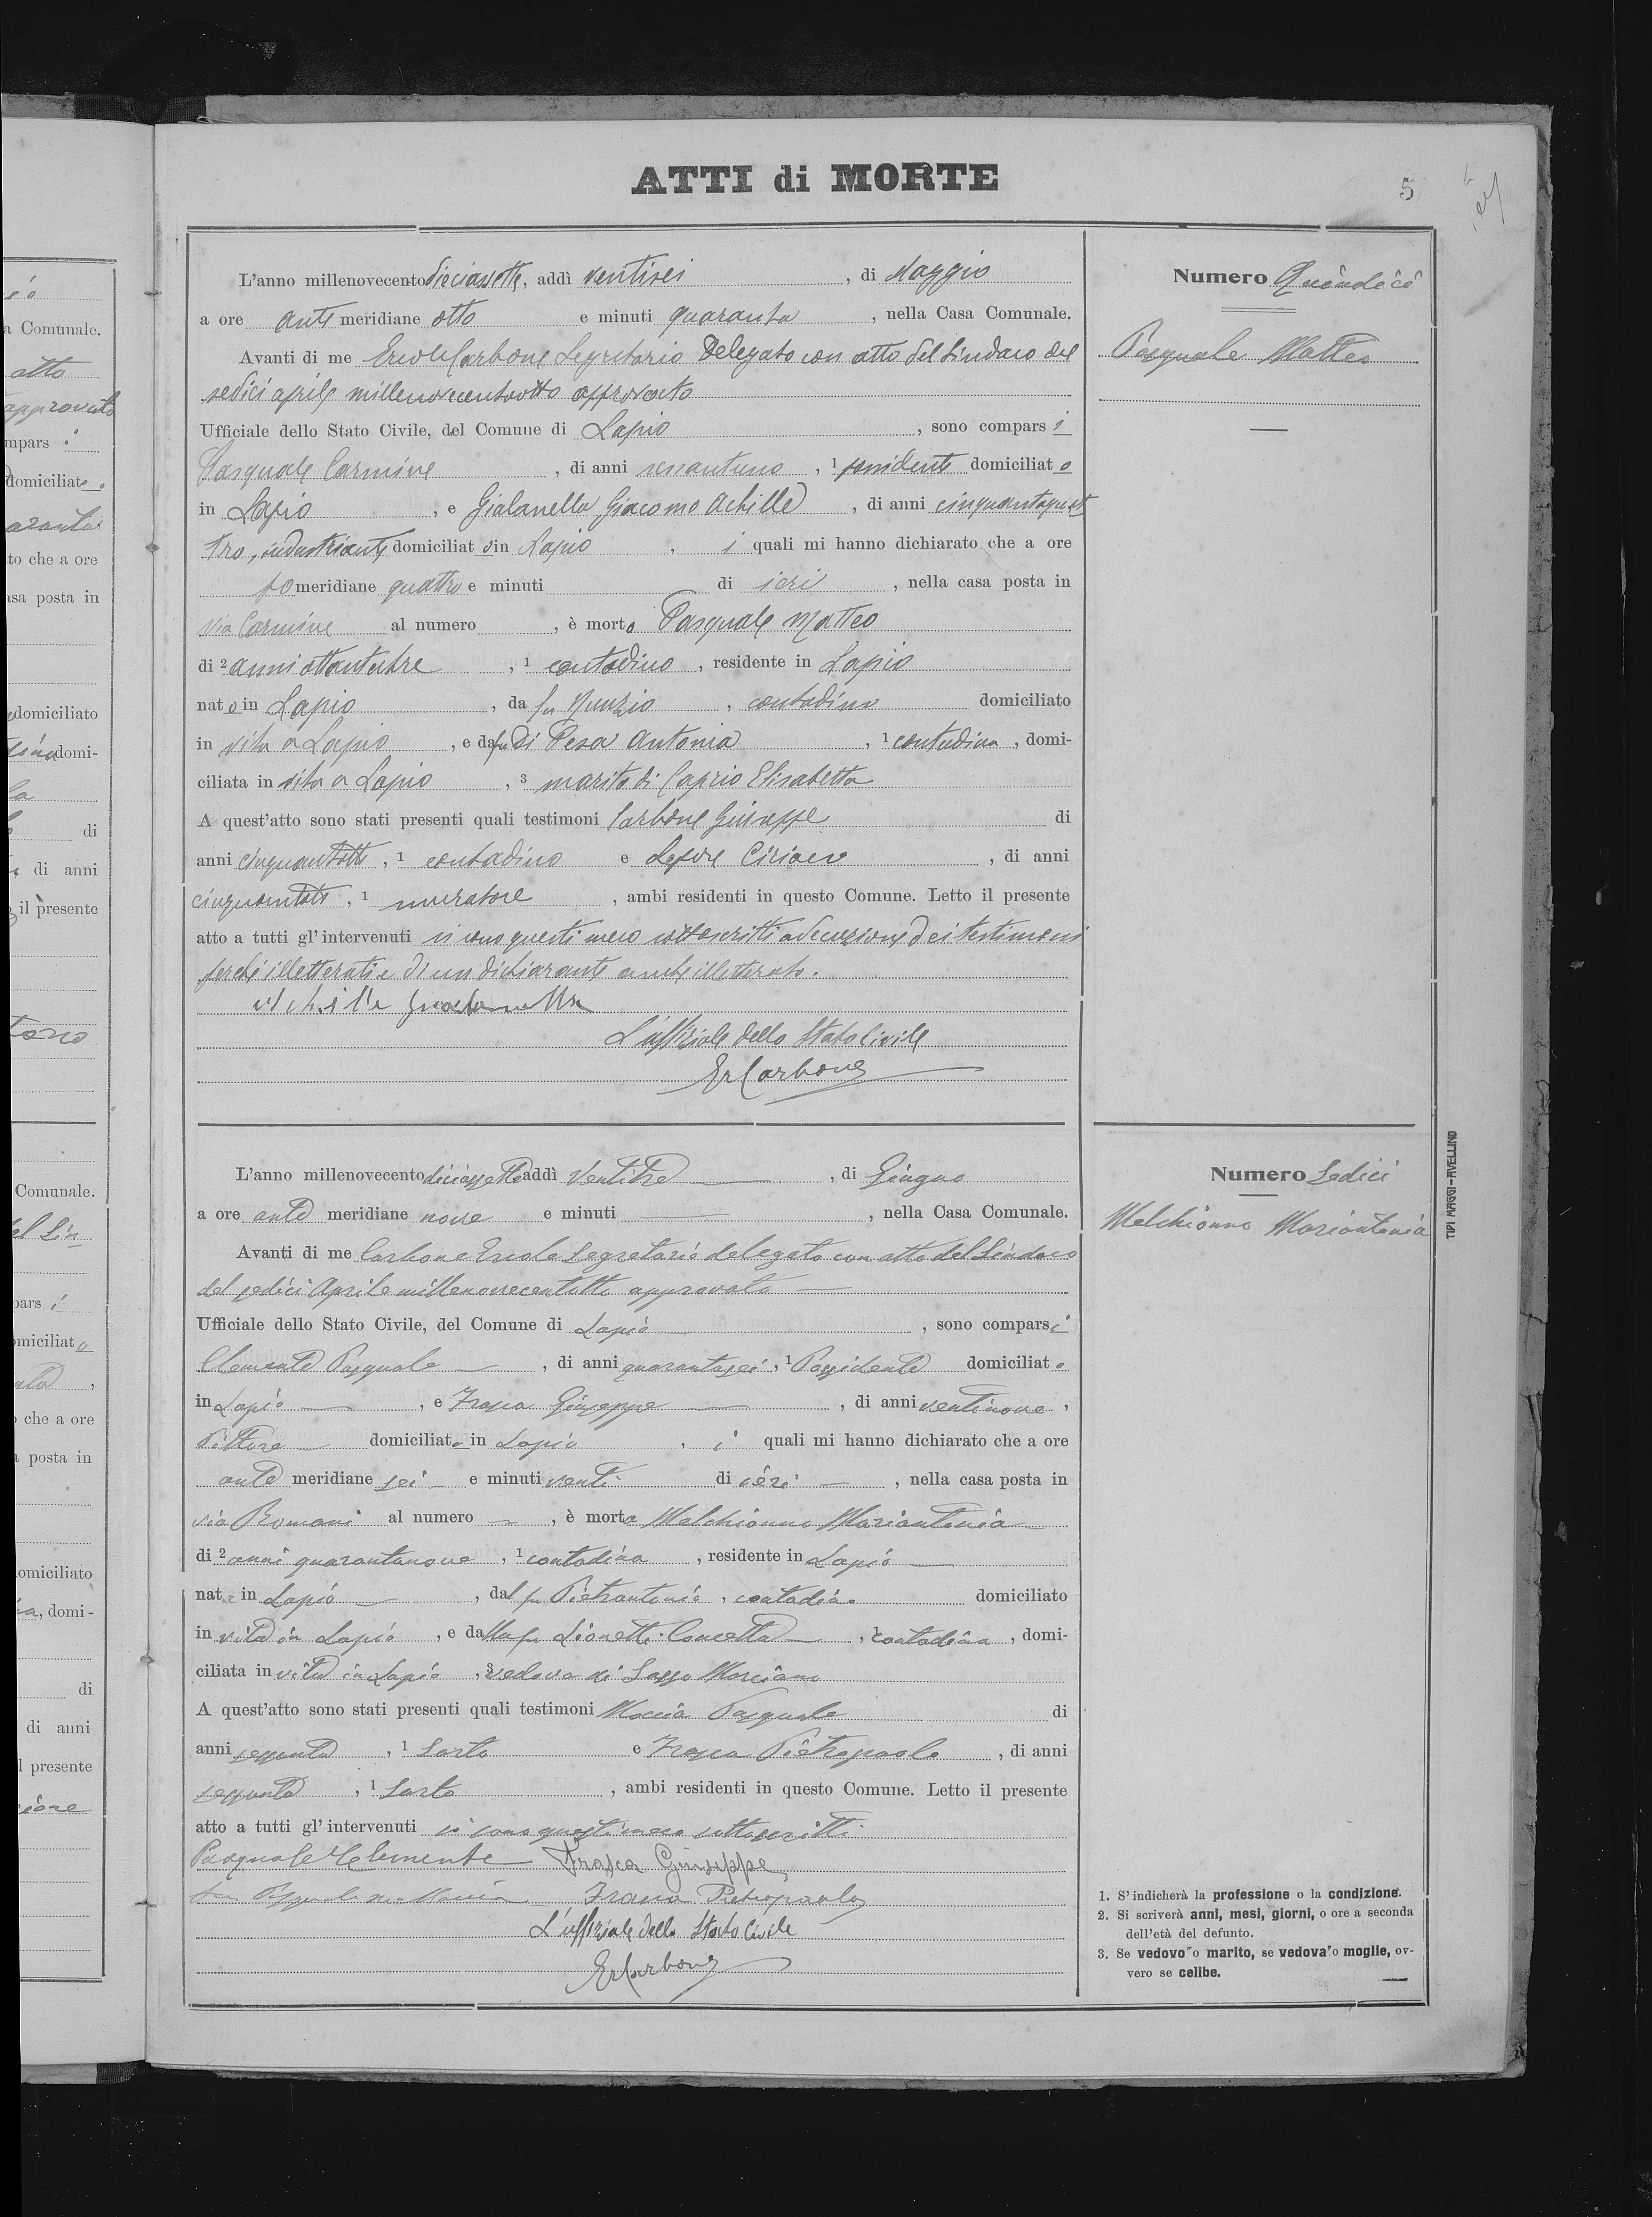 ATTI di MORTE
5
L'anno millenovecentodieciassette, addì ventisei, di Maggio
a ore anti meridiane otto e minuti quaranta, nella Casa Comunale.
Avanti di me Ercole Carbone Segretario Delegato con atto del Sindaco del
sedici aprile millenovecentootto approvato
Ufficiale dello Stato Civile, del Comune di Lapio, sono comparsi
Pasquale Carmine, di anni sessantuno, 1 possidente domiciliato
in Lapio, e Gialanella Giacomo Achille, di anni cinquantaquat
tro, industriante domiciliato in Lapio, i quali mi hanno dichiarato che a ore
po meridiane quattro e minuti di ieri, nella casa posta in
via Carmine al numero , è morto Pasquale Matteo
di 2 anni ottantatre, 1 contadino, residente in Lapio
nato in Lapio, da fu Nunzio, contadino domiciliato
in vita a Lapio, e da fu Di Pesa Antonia, 1 contadina, domi-
ciliata in vita a Lapio, 3 marito di Caprio Elisabetta
A quest'atto sono stati presenti quali testimoni Carbone Giuseppe di
anni cinquantotto, 1 contadino e Lepore Ciriaco, di anni
cinquantotto, 1 muratore, ambi residenti in questo Comune. Letto il presente
atto a tutti gl'intervenuti si sono questi meco sottoscritti ad eccezione dei testimoni
perché illetterati e di un dichiarante anche illetterato.
Achille Gialanella
L'uffiziale dello Stato Civile
Er Carbone
Numero Quindici
Pasquale Matteo
L'anno millenovecentodiciassette addì Ventitre, di Giugno
a ore ante meridiane nove e minuti , nella Casa Comunale.
Avanti di me Carbone Ercole Segretario delegato con atto del Sindaco
del sedici Aprile millenovecentotto approvato
Ufficiale dello Stato Civile, del Comune di Lapio, sono comparsi
Clemente Pasquale, di anni quarantasei, 1 Possidente domiciliato
in Lapio, e Frasca Giuseppe, di anni ventinove,
Pittore domiciliato in Lapio, i quali mi hanno dichiarato che a ore
ante meridiane sei e minuti venti di ieri, nella casa posta in
via Romani al numero , è morta Melchionno Mariantonia
di 2 anni quarantanove, 1 contadina, residente in Lapio
nata in Lapio, dal fu Pietrantonio, contadino domiciliato
in vita in Lapio, e dalla fu Lionetti Concetta, 1 contadina, domi-
ciliata in vita in Lapio, 3 vedova di Sasso Marciano
A quest'atto sono stati presenti quali testimoni Maccia Pasquale di
anni sessanta, 1 Sarto e Frasca Pietropaolo, di anni
sessanta, 1 Sarto, ambi residenti in questo Comune. Letto il presente
atto a tutti gl'intervenuti si sono questi meco sottoscritti
Pasquale Clemente Frasca Giuseppe
Frasca Pietropaolo
L'uffiziale dello Stato Civile
Er Carbone
Numero Sedici
Melchionno Mariantonia
1. S'indicherà la professione o la condizione.
2. Si scriverà anni, mesi, giorni, o ore a seconda
dell'età del defunto.
3. Se vedovo o marito, se vedova o moglie, ov-
vero se celibe.
TIPI MAGGI - AVELLINO